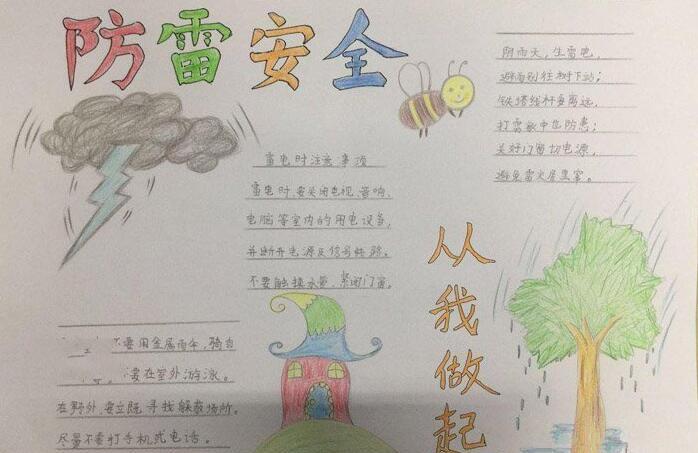 防雷安全
阴雨天，生雷电，
避雨别往树下站；
铁塔线杆要离远，
打雷家中也防患；
关好门窗切电源，
避免雷火屋里窜。
雷电时注意事项
雷电时，要关闭电视、音响、
电脑等室内的用电设备，
并断开电源及信号线路。
不要触摸水管，紧闭门窗。
从我做起
不要用金属雨伞，骑自
要在室外游泳。
在野外，要立即寻找躲蔽场所。
尽量不要打手机或电话。